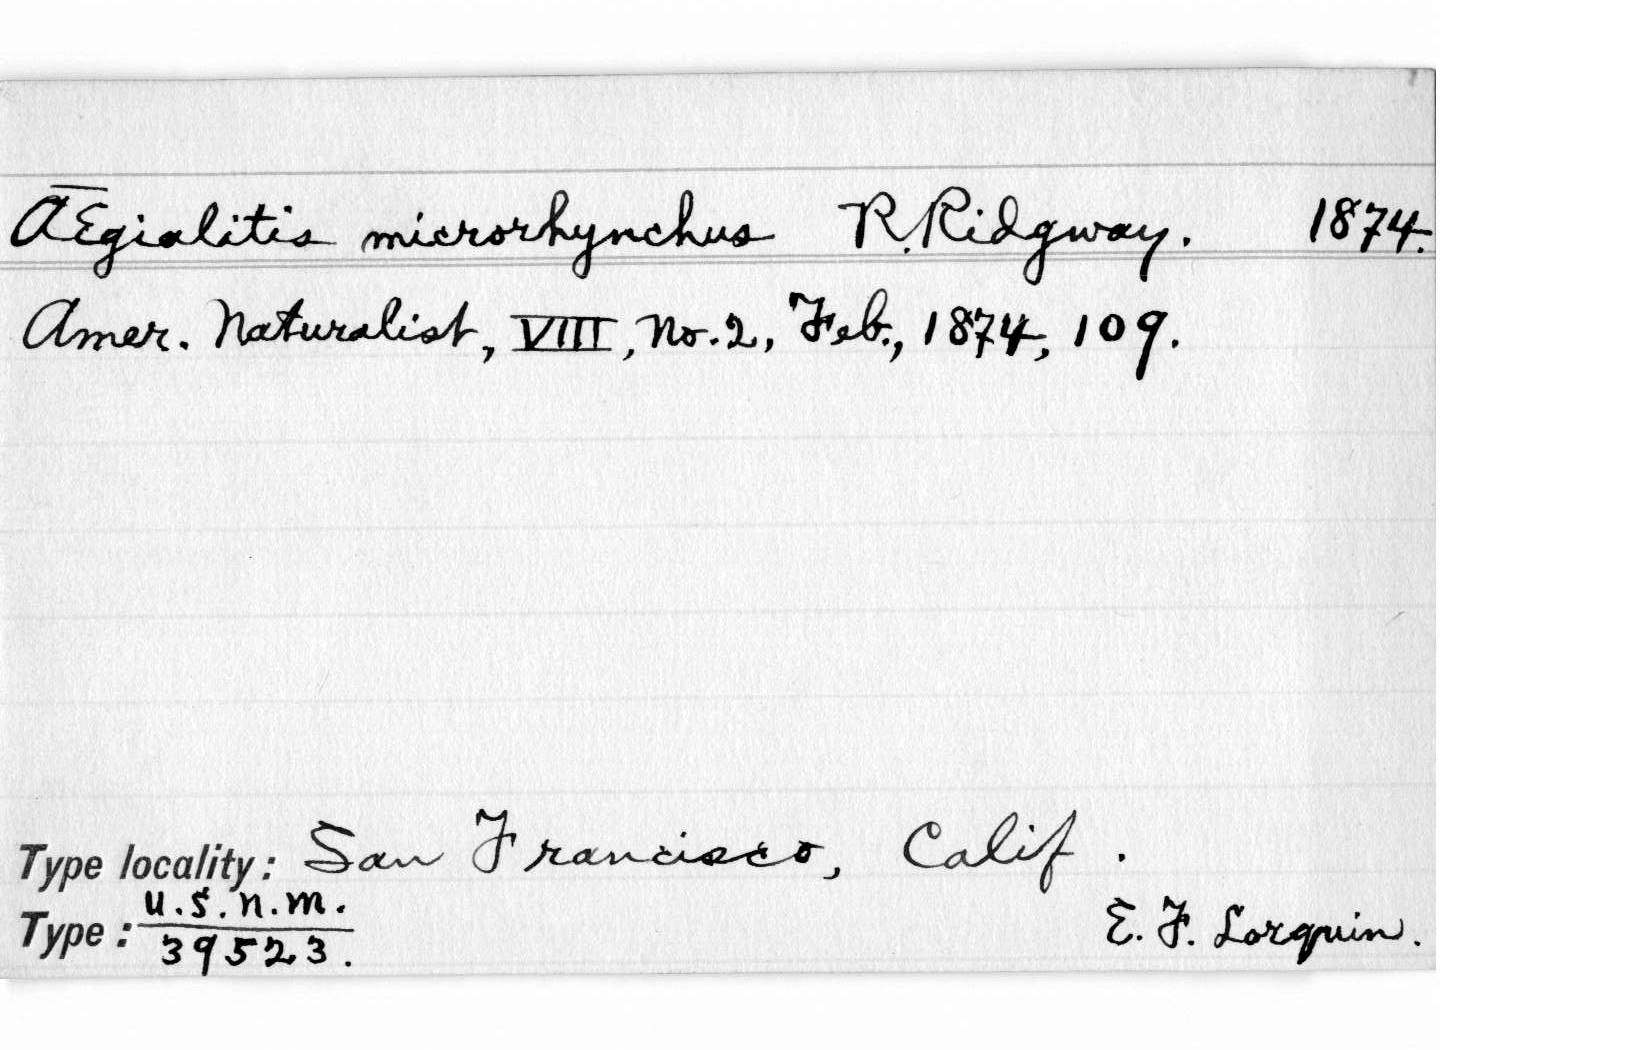 Ægialitis microrhynchus R. Ridgway. 1874.
Amer. Naturalist, VIII, No. 2, Feb., 1874, 109.
Type locality: San Francisco, Calif.
Type: U.S.N.M.
39523.
E. F. Lorquin.